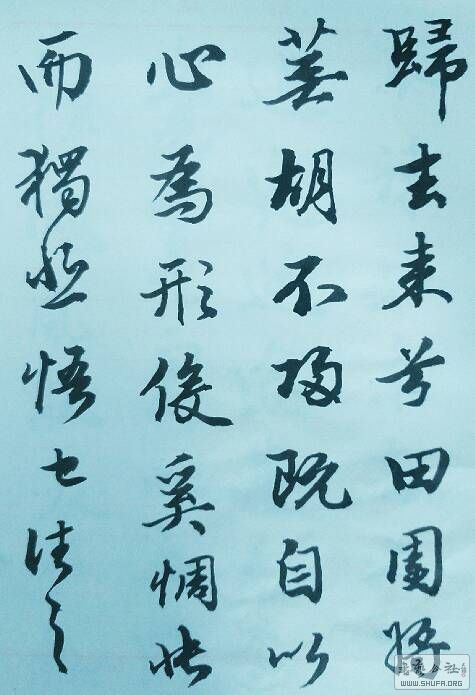 歸去来兮田園将
蕪胡不归既自以
心為形役奚惆悵
而獨悲悟已往之
WWW.SHUFA.ORG